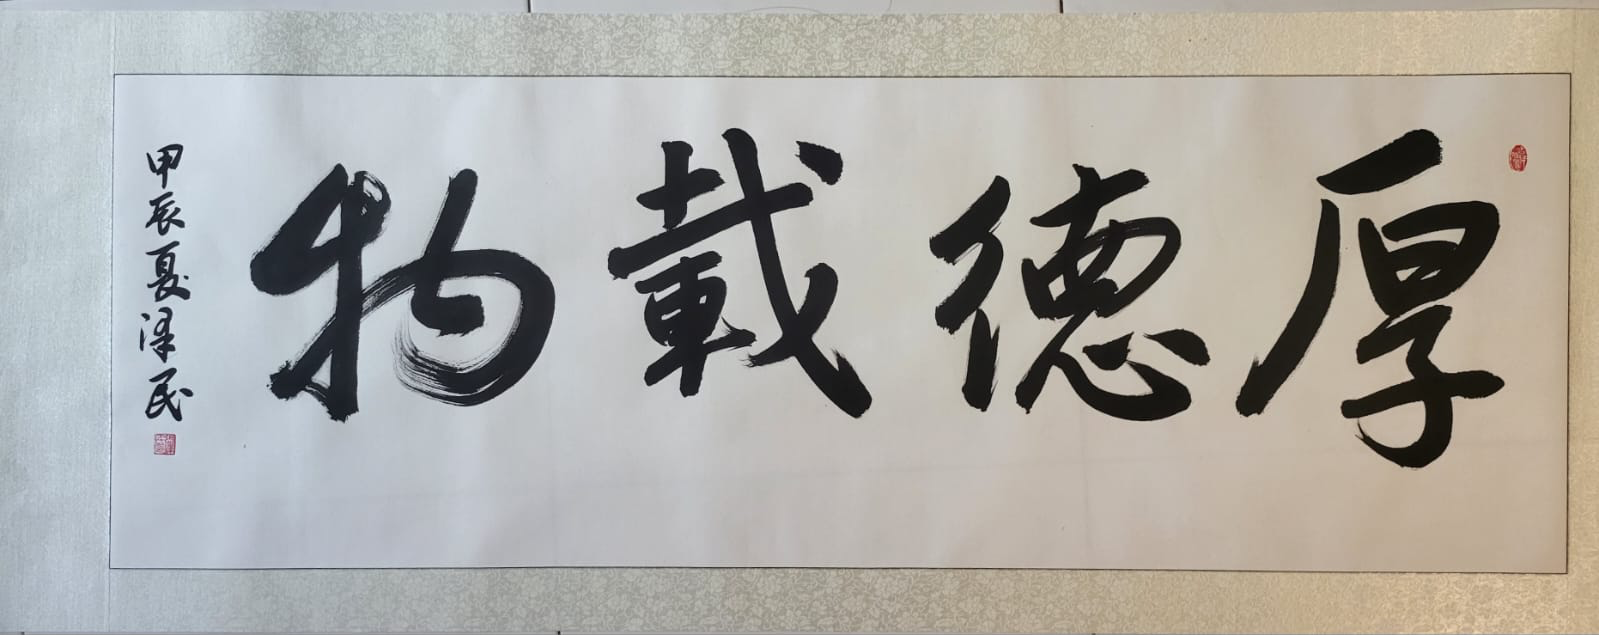 厚德載物
甲辰夏泽民